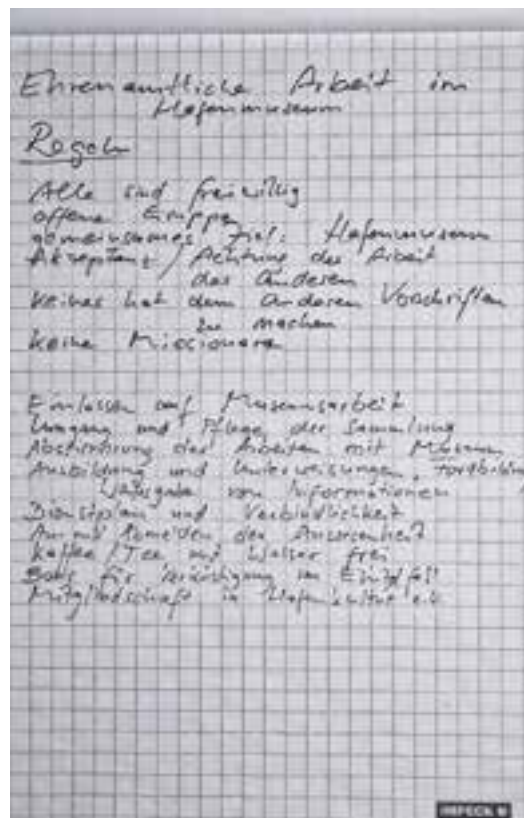 Ehrenamtliche Arbeit im
Hafenmuseum
Regeln
Alle sind freiwillig
offene Gruppe
gemeinsames Ziel: Hafenmuseum
Akzeptanz / Achtung der Arbeit
des anderen
keiner hat dem anderen Vorschriften
zu machen
keine Missionare
Einlassen auf Museumsarbeit
Umgang und Pflege der Sammlung
Abstimmung der Arbeiten mit Museum
Ausbildung und Unterweisungen, Fortbildung
Weitergabe von Informationen
Dienstplan und Verbindlichkeit
An und Abmelden der Anwesenheit
Kaffee / Tee und Wasser frei
Bons für Verköstigung im
Mitgliedschaft in Hafenkultur e.V.